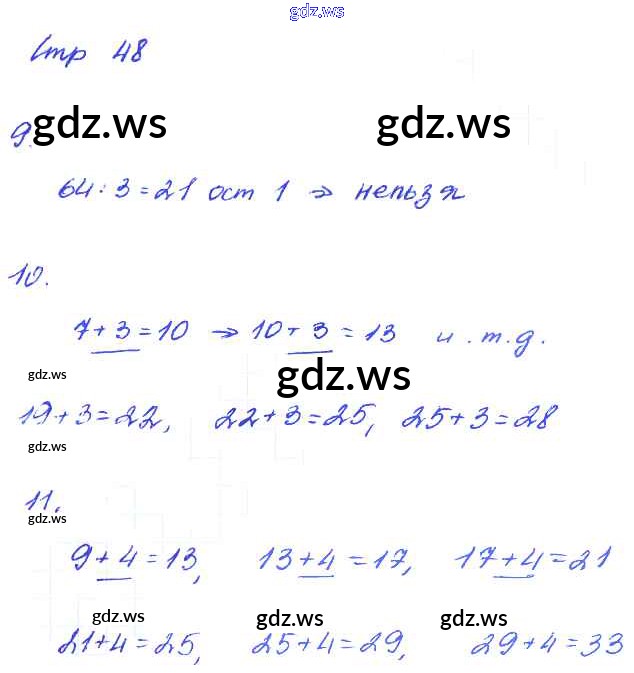 gdz.ws
Стр 48
gdz.ws gdz.ws
9.
64:3=21 ост 1 ⇒ нельзя
10.
7+3=10 → 10+3=13 и.т.д.
gdz.ws gdz.ws
19+3=22, 22+3=25, 25+3=28
gdz.ws
11.
gdz.ws
9+4=13, 13+4=17, 17+4=21
gdz.ws gdz.ws gdz.ws
21+4=25, 25+4=29, 29+4=33